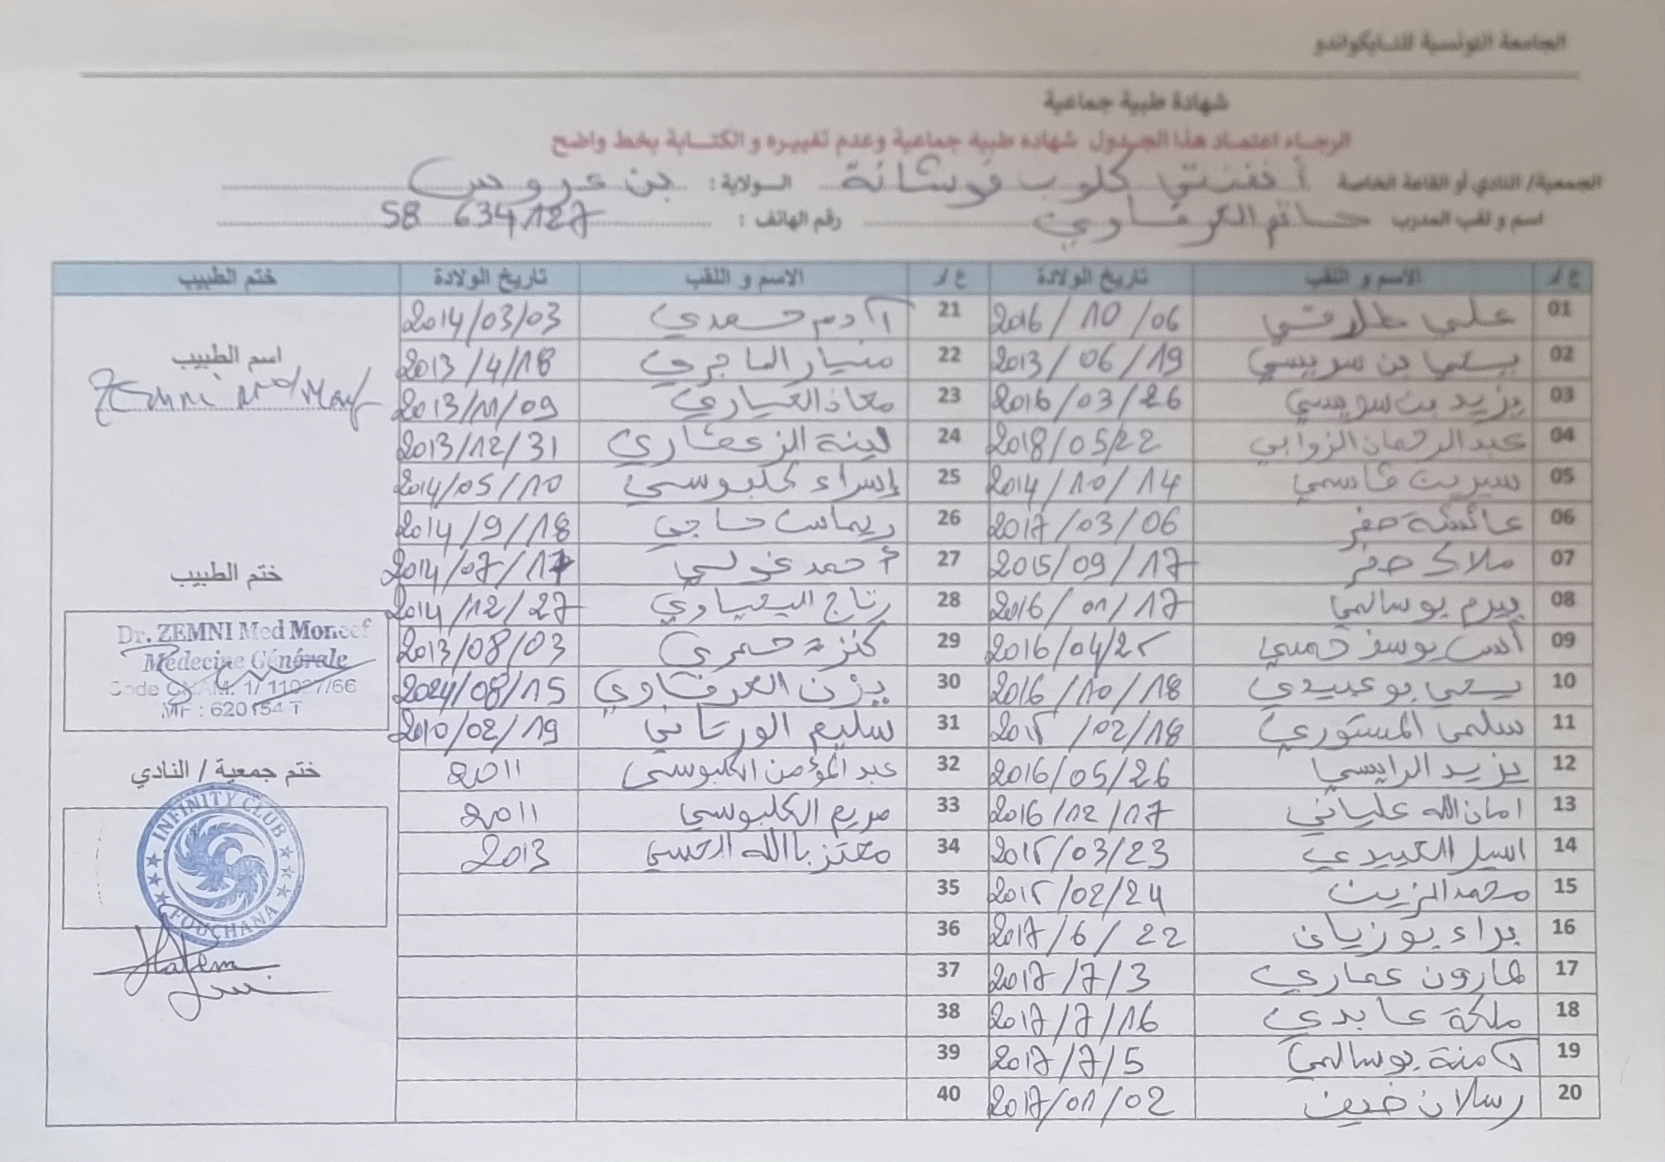 الجامعة التونسية للتايكواندو
شهادة طبية جماعية
الرجاء اعتماد هذا الجدول شهاده طبية جماعية وعدم تغييره و الكتابة بخط واضح
الجمعية/ النادي أو القاعة الخاصة أنفنتي كلوب فوشانة الولاية: بن عروس
اسم و لقب المدرب حاتم العرفاوي رقم الهاتف: 58 634 127
ع/ر الاسم و اللقب تاريخ الولادة ع/ر الاسم و اللقب تاريخ الولادة ختم الطبيب
01 علي طلارقي 2016/10/06 21 آدم حمدي 2014/03/03
02 يحي بن سويسي 2013/06/19 22 منيار الماجري 2013/4/18
03 يزيد بن سويسي 2016/03/26 23 معاذ العياري 2013/11/09
04 عبد الرحمان الزوابي 2018/05/22 24 لينة الزعفاري 2013/12/31
05 سيرين قاسمي 2014/10/14 25 إسراء كلبوسي 2014/05/10
06 عائشة صفر 2017/03/06 26 ريماس حاجي 2014/9/18
07 ملاك صفر 2015/09/17 27 أحمد غولي 2014/07/17
08 بيرم بوسالمي 2016/01/17 28 رتاج اليحياوي 2014/12/27
09 أنس يوسف حمدي 2016/04/25 29 كنزة حمري 2013/08/03
10 يحي بوعبيدي 2016/10/18 30 يزن العرفاوي 2024/08/15
11 سلمى المستوري 2015/02/18 31 سليم الورتاني 2010/02/19
12 يزيد الرايسي 2016/05/26 32 عبد المؤمن الكلبوسي 2011
13 امان الله علياني 2016/12/17 33 مريم الكلبوسي 2011
14 اسيل العبيدي 2015/03/23 34 معتز باالله 2013
15 محمد الزين 2015/02/24 35
16 براء بوزيان 2017/6/22 36
17 هارون عماري 2017/7/3 37
18 ملكة عابدي 2017/7/16 38
19 آمنة بوسالمي 2017/7/5 39
20 رسلان ضيف 2017/01/02 40
اسم الطبيب
Zemni Med Moncef
ختم الطبيب
Dr. ZEMNI Med Moncef
Médecine Générale
Code CNAM: 1/11027/66
MF : 620154 T
ختم جمعية / النادي
INFINITY CLUB
FOUCHANA
Hatem